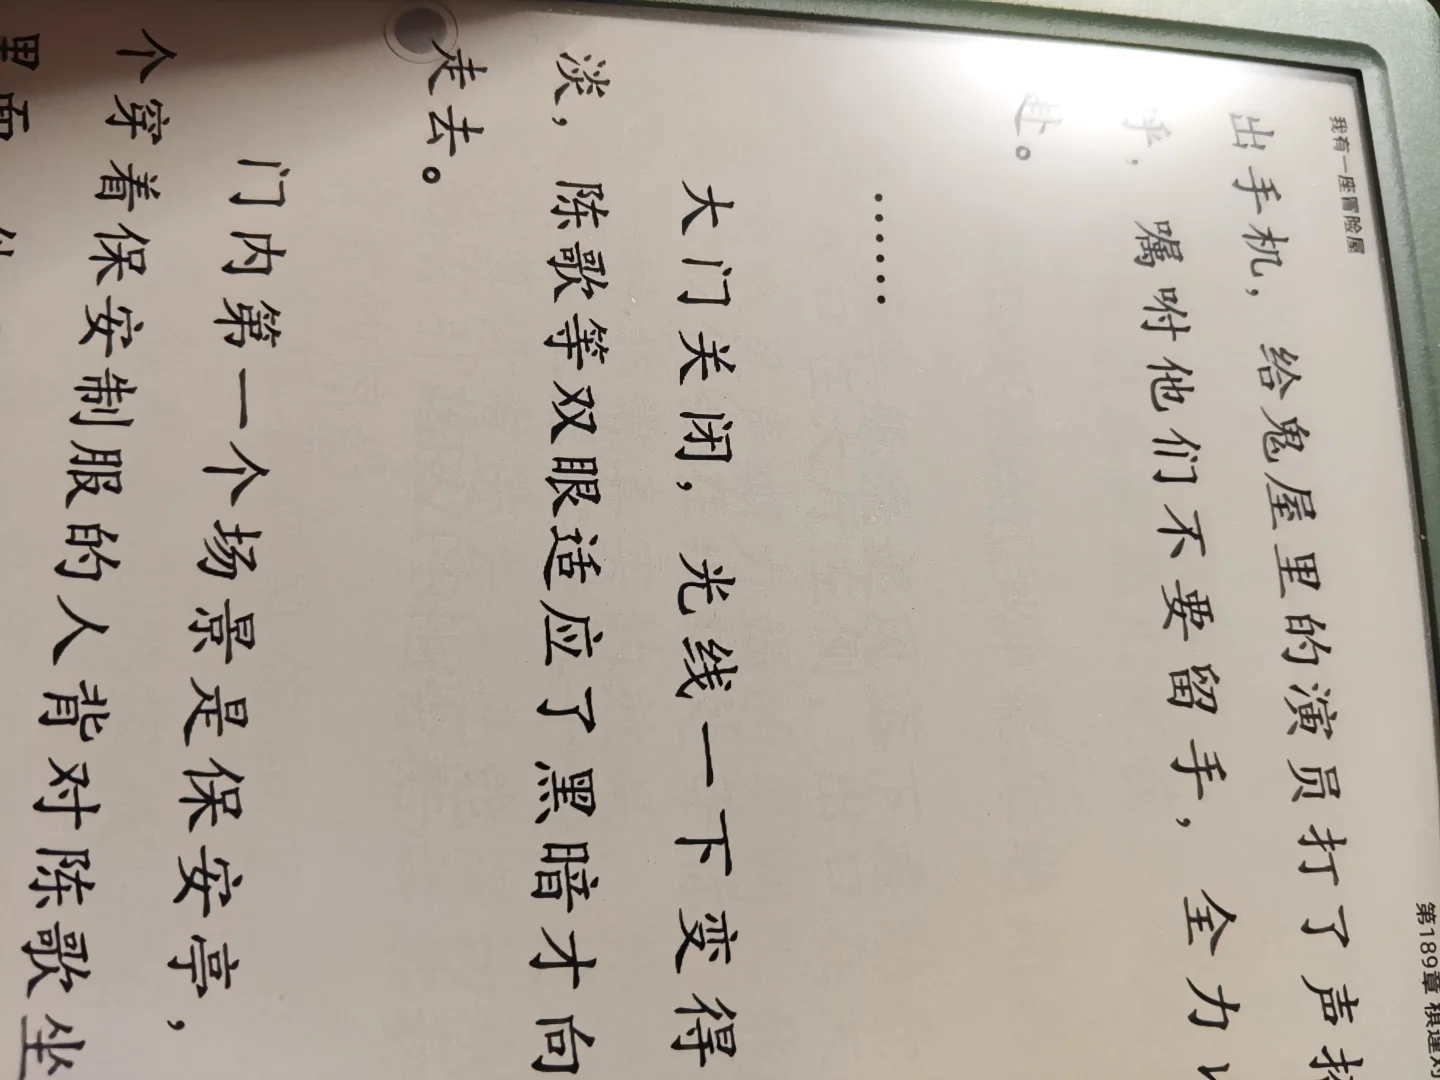 我有一座冒险屋
第189章 棋逢对
出手机，给鬼屋里的演员打了声招
呼，嘱咐他们不要留手，全力以
赴。
……
大门关闭，光线一下变得
淡，陈歌等双眼适应了黑暗才向
走去。
门内第一个场景是保安亭，
个穿着保安制服的人背对陈歌坐
里面